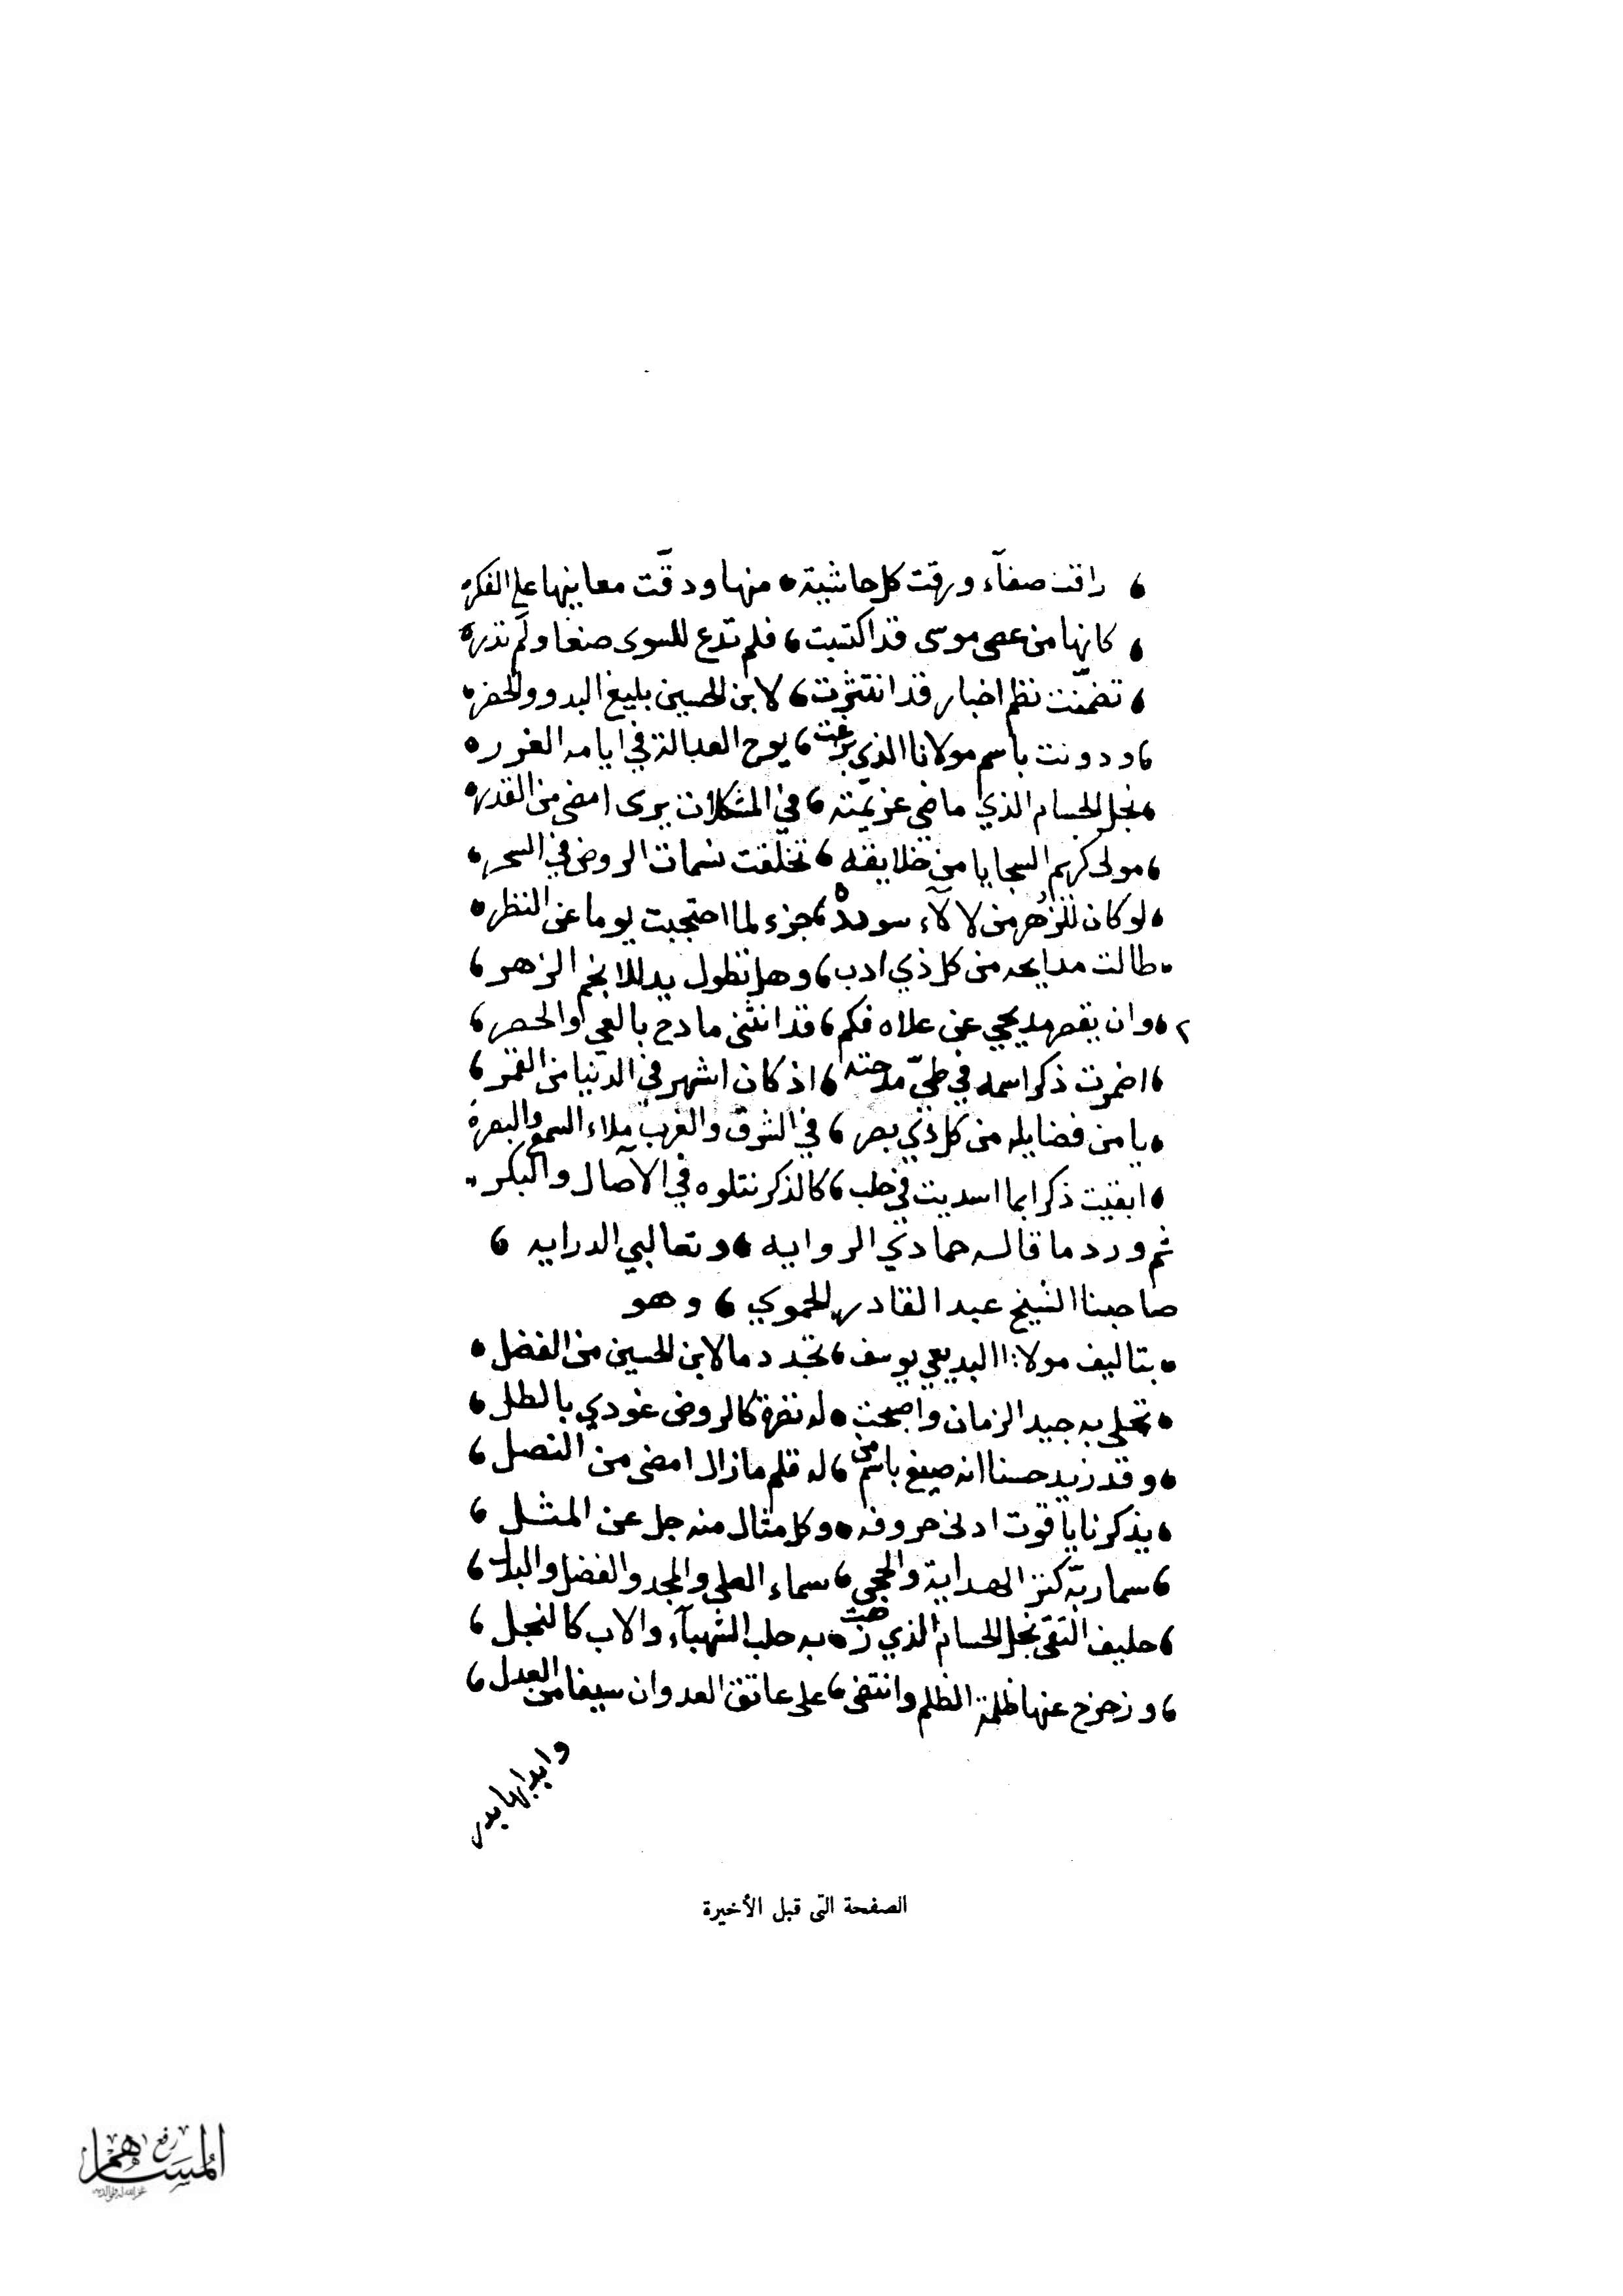 راقت صفآء ورقت كل حاشية منها ودقّت معاينها على الفكر
كانها من عصى موسى قد اكتسبت فلم تدع للسوى صنعا ولم تذر
تضمّنت نظم اخبار قد انتثرت لابن الحسين بليغ البدو والحضر
ودونت باسم مولانا الذي بزغت يوح العدالة في ايامه الغرر
نجل الحسام الذي ماضي عزيمته في المشكلات يرى امضى من القدر
مولى كريم السجايا من خلايقه تخلّقت نسمات الروض في السحر
لو كان للزُهر من لالآء سودده جزء لما احتجبت يوما عن النظر
طالت مدايحه من كل ذي ادب وهل تطول يد للانجم الزهر
وان يقصر مديحي عن علاه فكم قد انثنى مادح بالعي والحصر
اضمرت ذكر اسمه في طيّ مدحته اذ كان اشهر في الدنيا من القمر
يا من فضايله من كل ذي بصر في الشرق والغرب ملاء السمع والبصر
ابقيت ذكرا بما اسديت في حلب كالذكر نتلوه في الآصال والبكر
ثم ورد ما قاله حمادي الروايه وتعالبي الدرايه
صاحبنا الشيخ عبد القادر الحموي وهو
بتاليف مولانا البديعي يوسف تجدد ما لابن الحسين من الفضل
تحلى به جيد الزمان واصبحت له نضرة كالروض غودي بالطل
وقد زيد حسنا انه صيغ باسم من له قلم ما زال امضى من النصل
يذكرنا ياقوت ادنى حروفه وكل مثال منه جل عن المثل
سما ربّه كنز الهداية والحجى سماء العلى والمجد والفضل والبذل
حليف التقى نجل الحسام الذي زهت به حلب الشهبآء والاب كالنجل
وزحزح عنها ظلمة الظلم وانتضى على عاتق العدوان سيفا من العدل
وابدالها بدر
الصفحة التى قبل الأخيرة
رفع
المساهم
غفر الله له ولوالديه